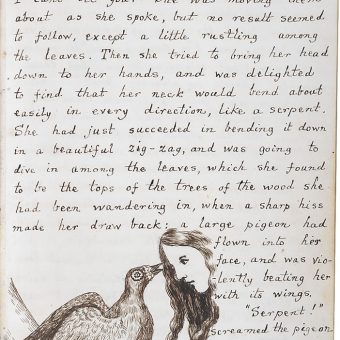 about as she spoke, but no result seemed
to follow, except a little rustling among
the leaves. Then she tried to bring her head
down to her hands, and was delighted
to find that her neck would bend about
easily in every direction, like a serpent.
She had just succeeded in bending it down
in a beautiful zig-zag, and was going to
dive in among the leaves, which she found
to be the tops of the trees of the wood she
had been wandering in, when a sharp hiss
made her draw back: a large pigeon had
flown into her
face, and was vio-
-lently beating her
with its wings.
"Serpent!"
screamed the pigeon